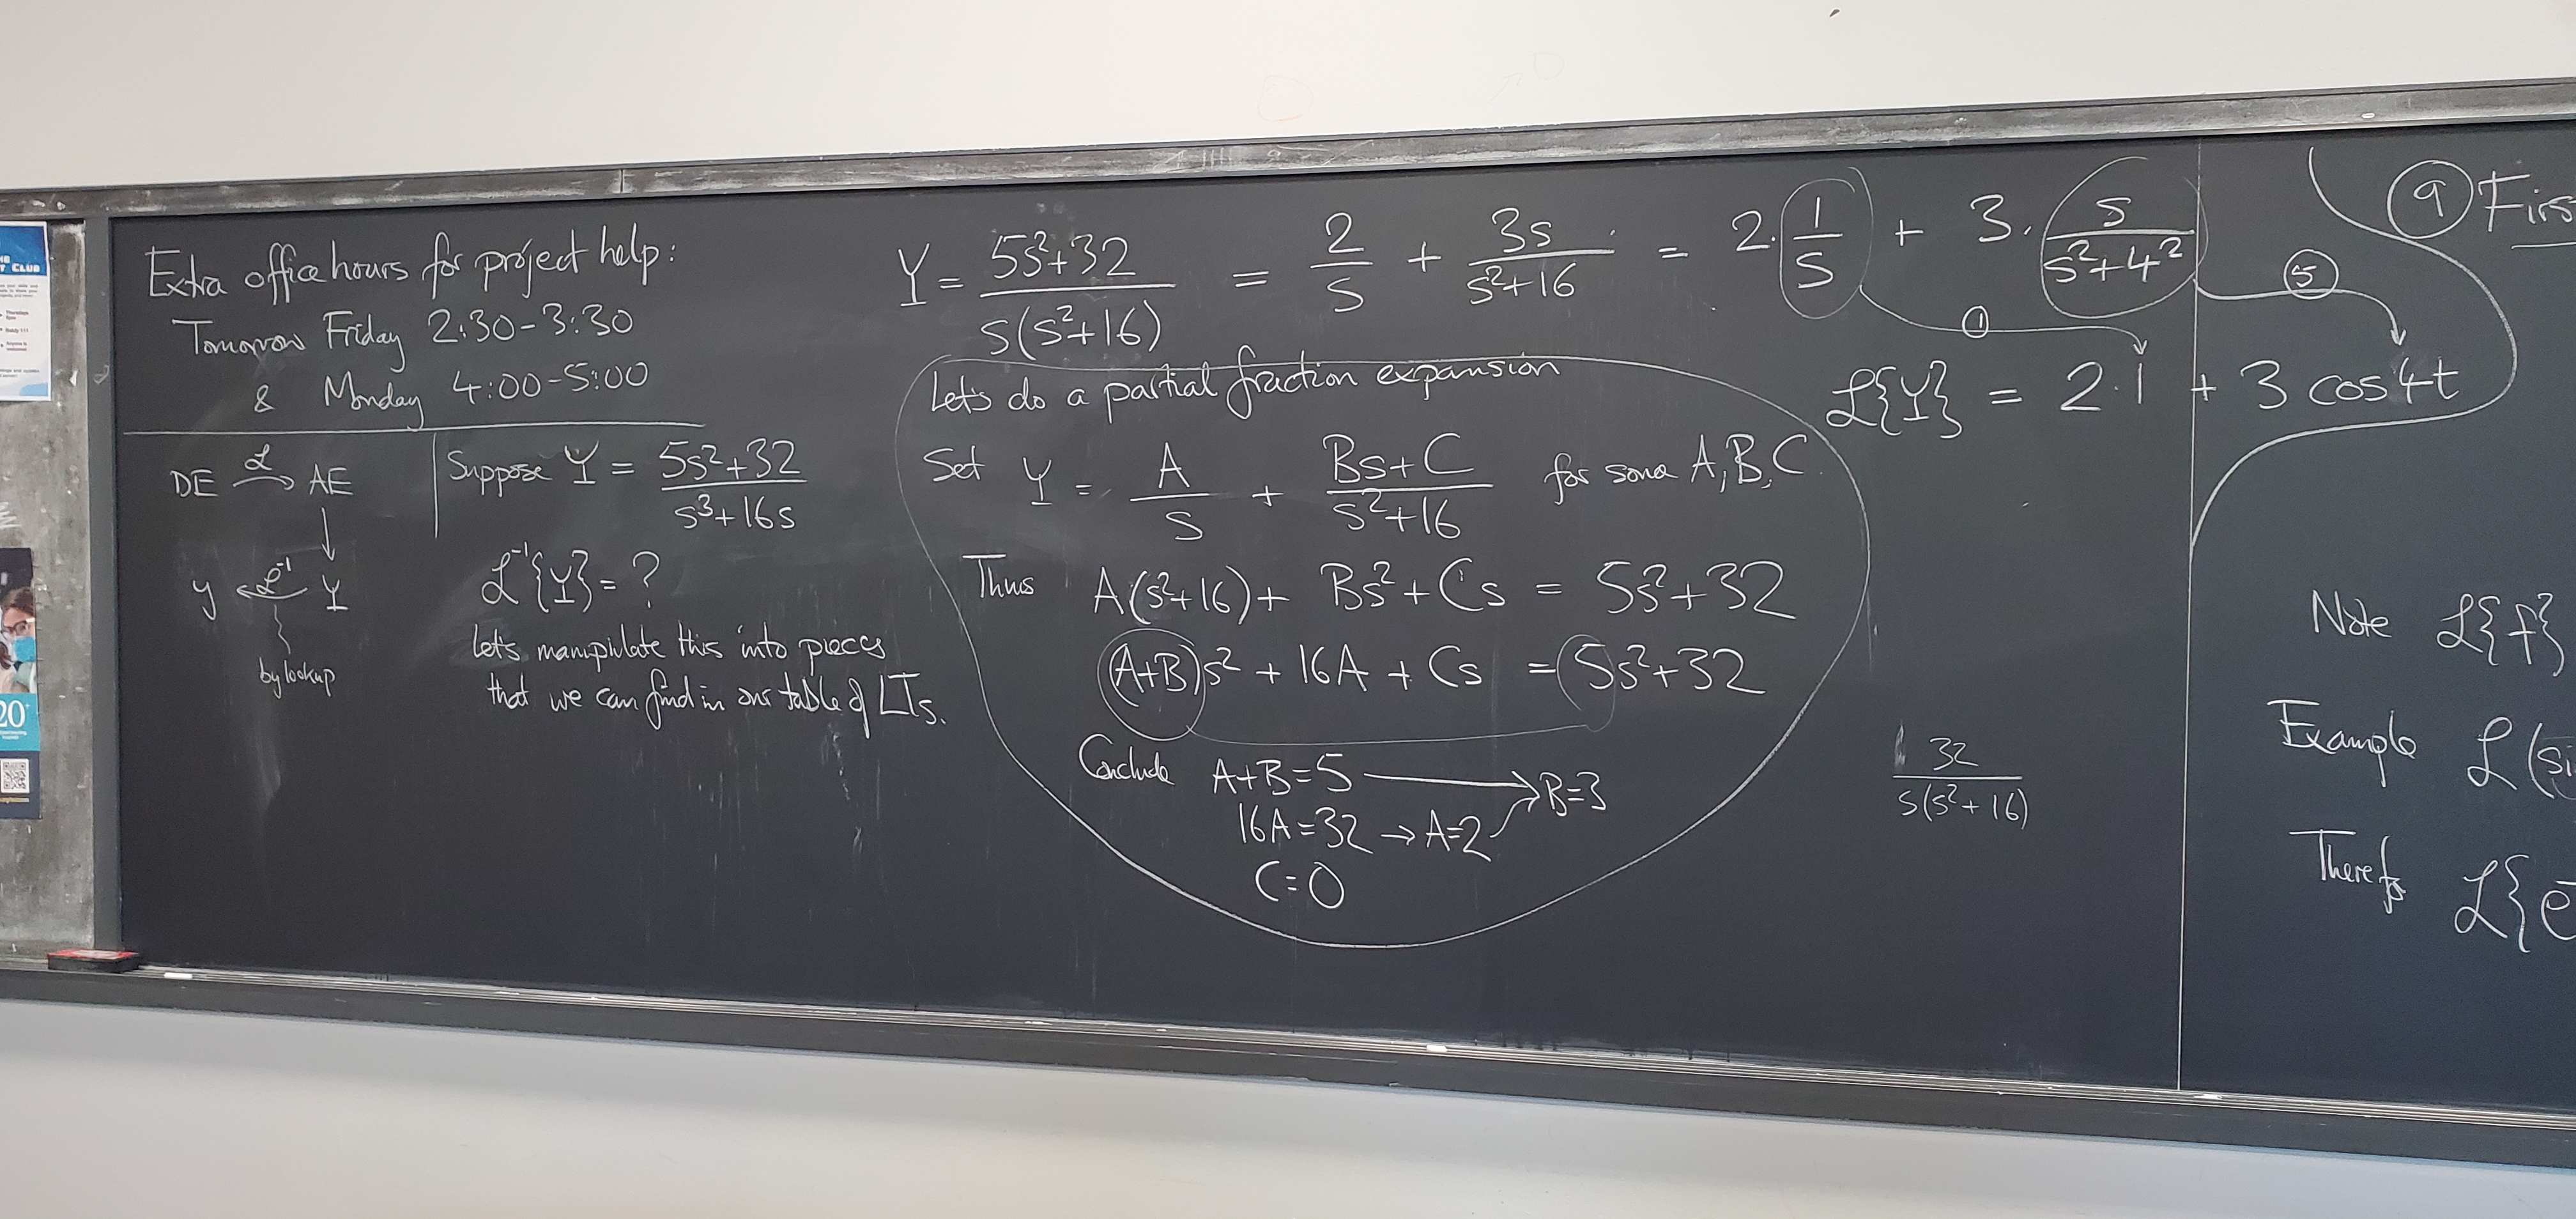 Extra office hours for project help:
Tomorrow Friday 2:30-3:30
& Monday 4:00-5:00
DE ℒ→ AE
↓
y ←ℒ⁻¹ Y
by lookup
Suppose Y = (5s²+32)/(s³+16s)
ℒ⁻¹{Y} = ?
Let's manipulate this into pieces
that we can find in our table of LTs.
Y = (5s²+32)/(s(s²+16)) = 2/s + 3s/(s²+16) = 2·1/s + 3·s/(s²+4²)
① ⑤
ℒ{Y} = 2·1 + 3 cos4t
Let's do a partial fraction expansion
Set Y = A/s + (Bs+C)/(s²+16) for some A,B,C
Thus A(s²+16)+ Bs²+Cs = 5s²+32
(A+B)s² + 16A + Cs = 5s²+32
Conclude A+B=5 → B=3
16A=32 → A=2
C=0
32/(s(s²+16))
⑨ Firs
Note ℒ{f}
Example ℒ(si
Therefo
ℒ{e
20
CLUB